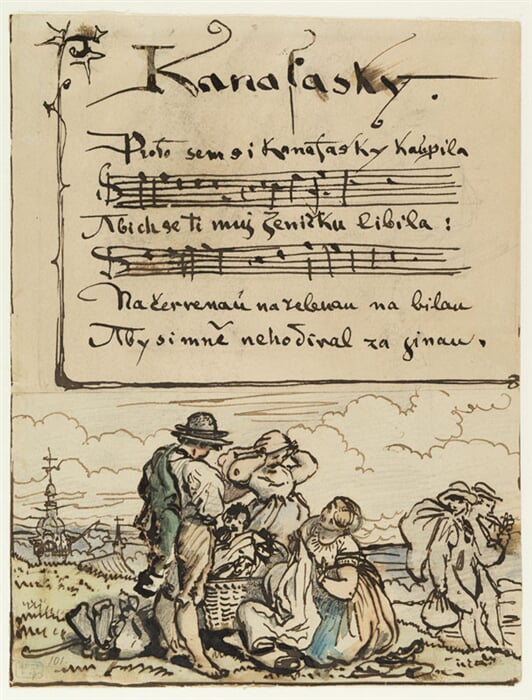 Kanafasky.
Proto sem si Kanafasky kaupila
Abich se ti muj Ženičku libila:
Na červenaú na zelenau na bilau
Aby si mně nehodíval za ginau.
101